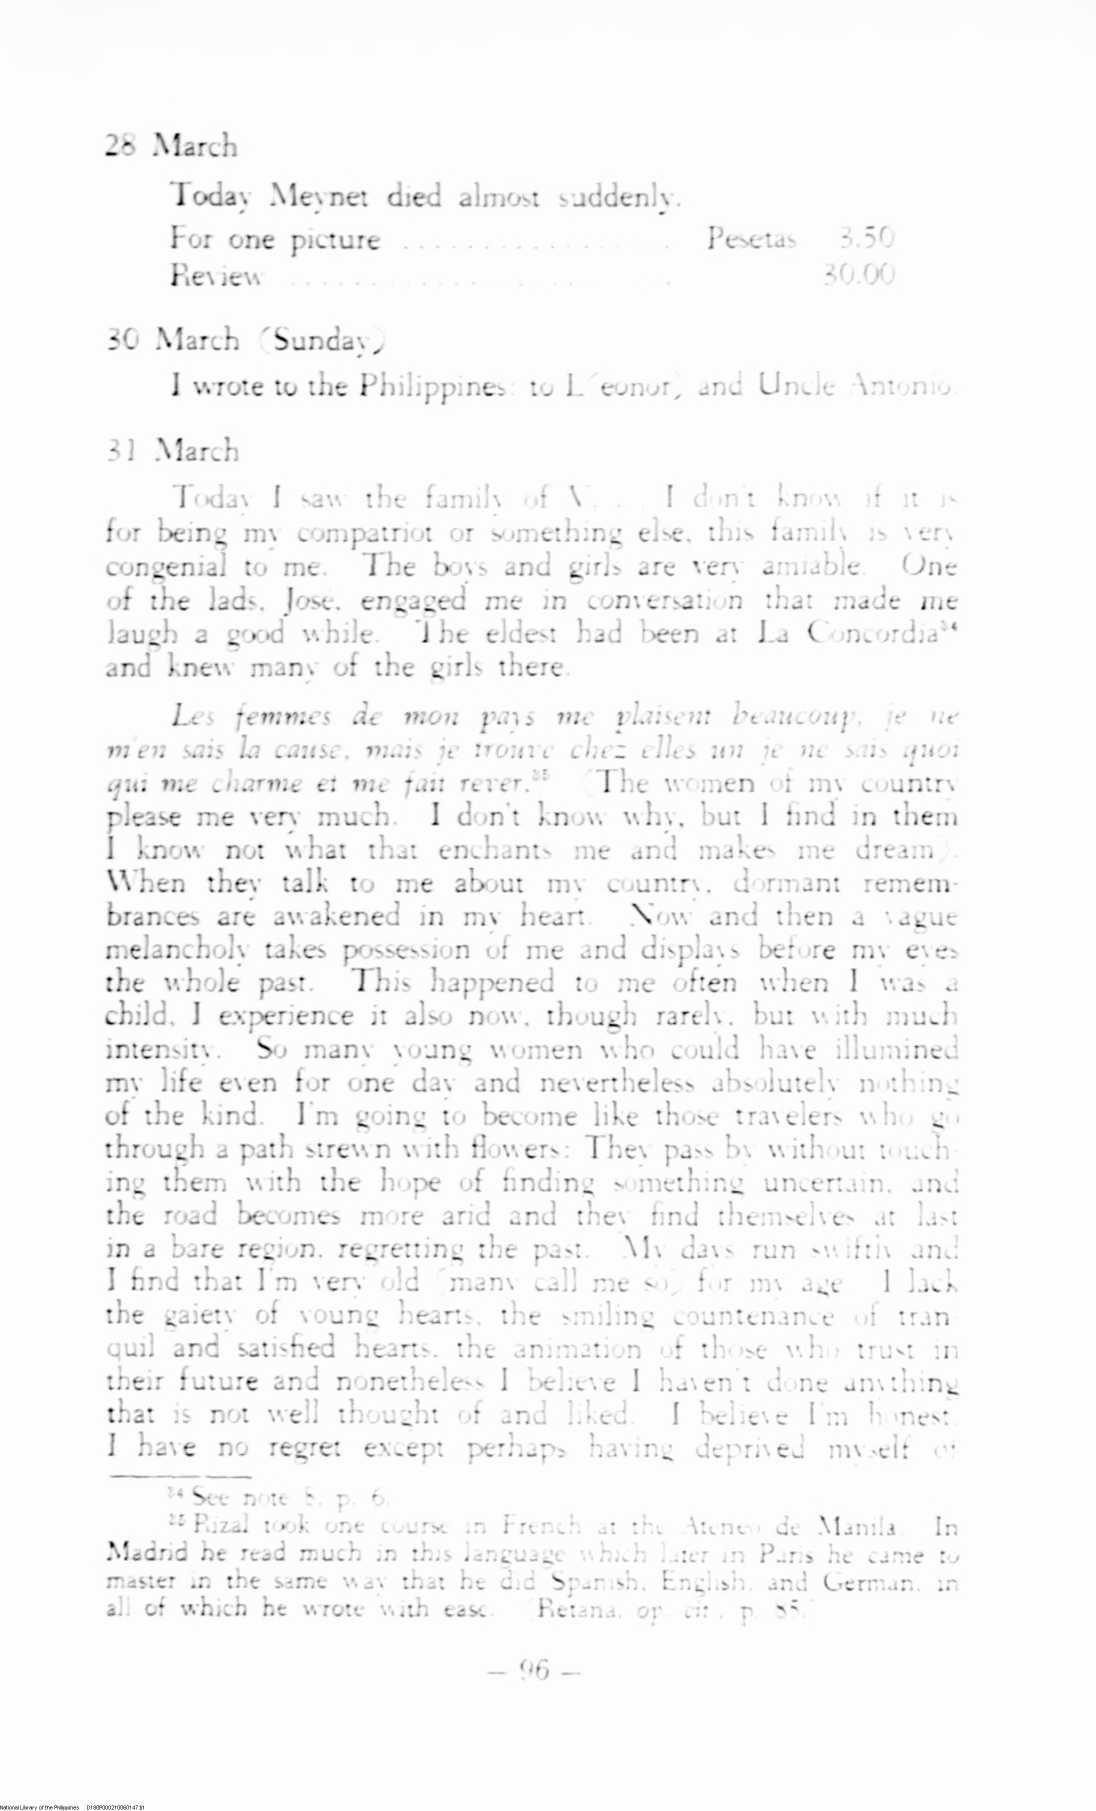 28 March
Today Meynet died almost suddenly.
For one picture . . . . . . . . . . . . . . . . . Pesetas 3.50
Review . . . . . . . . . . . . . . . . . . . . . . . . 30.00
30 March (Sunday)
I wrote to the Philippines: to L(eonor) and Uncle Antonio.
31 March
Today I saw the family of V. . . I don't know if it is
for being my compatriot or something else, this family is very
congenial to me. The boys and girls are very amiable. One
of the lads, Jose, engaged me in conversation that made me
laugh a good while. The eldest had been at La Concordia³⁴
and knew many of the girls there.
Les femmes de mon pays me plaisent beaucoup, je ne
m'en sais la cause, mais je trouve chez elles un je ne sais quoi
qui me charme et me fait rever.³⁵ (The women of my country
please me very much. I don't know why, but I find in them
I know not what that enchants me and makes me dream.).
When they talk to me about my country, dormant remem-
brances are awakened in my heart. Now and then a vague
melancholy takes possession of me and displays before my eyes
the whole past. This happened to me often when I was a
child, I experience it also now, though rarely, but with much
intensity. So many young women who could have illumined
my life even for one day and nevertheless absolutely nothing
of the kind. I'm going to become like those travelers who go
through a path strewn with flowers: They pass by without touch-
ing them with the hope of finding something uncertain, and
the road becomes more arid and they find themselves at last
in a bare region, regretting the past. My days run swiftly and
I find that I'm very old (many call me so) for my age. I lack
the gaiety of young hearts, the smiling countenance of tran-
quil and satisfied hearts, the animation of those who trust in
their future and nonetheless I believe I haven't done anything
that is not well thought of and liked. I believe I'm honest.
I have no regret except perhaps having deprived myself of
³⁴ See note 8, p. 6.
³⁵ Rizal took one course in French at the Ateneo de Manila. In
Madrid he read much in this language which later in Paris he came to
master in the same way that he did Spanish, English, and German, in
all of which he wrote with ease. (Retana, op. cit., p. 85.)
— 96 —
National Library of the Philippines D180P000210060147.tif